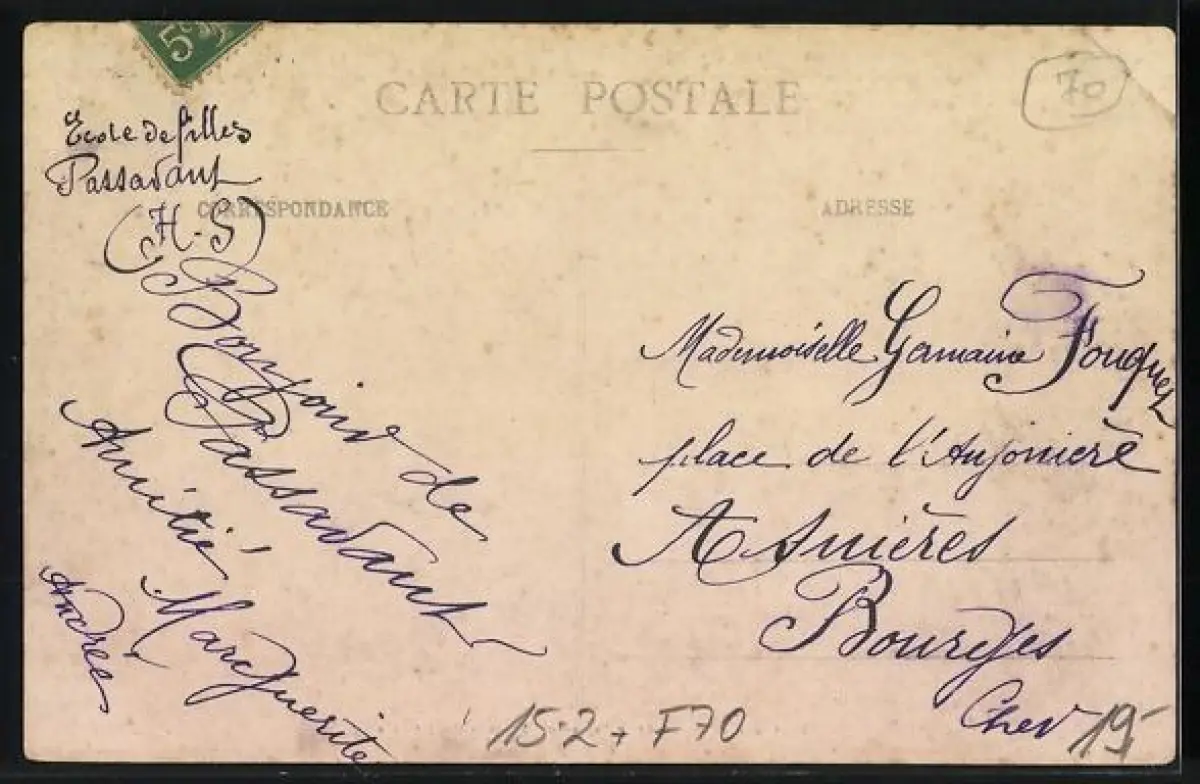 5c
CARTE POSTALE
70
Ecole de filles
Passavant
(H-S)
CORRESPONDANCE
ADRESSE
Bonjour de
Passavant
Amitié
Marguerite
Andrée
Mademoiselle Germaine Fouquez
place de l'Anjonière
Asnières
Bourges
Cher
15-2 + F70
19